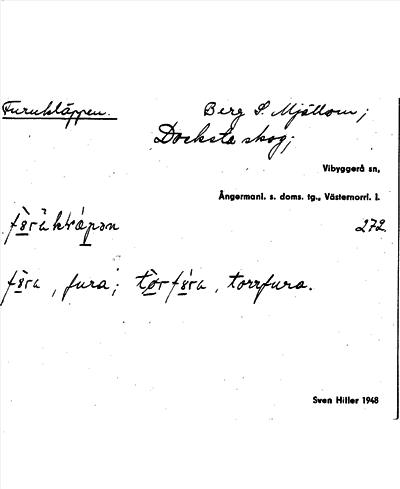 Furukläppen. Berg S. Mjällom;
Docksta skog;
Vibyggerå sn,
Ångermanl. s. doms. tg., Västernorrl. l.
272
, fura; , torrfura.
Sven Hiller 1948